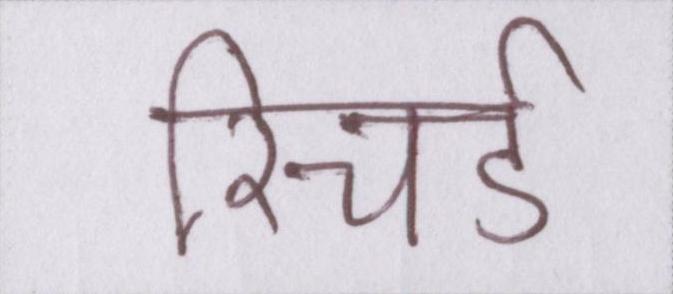 रिचर्ड